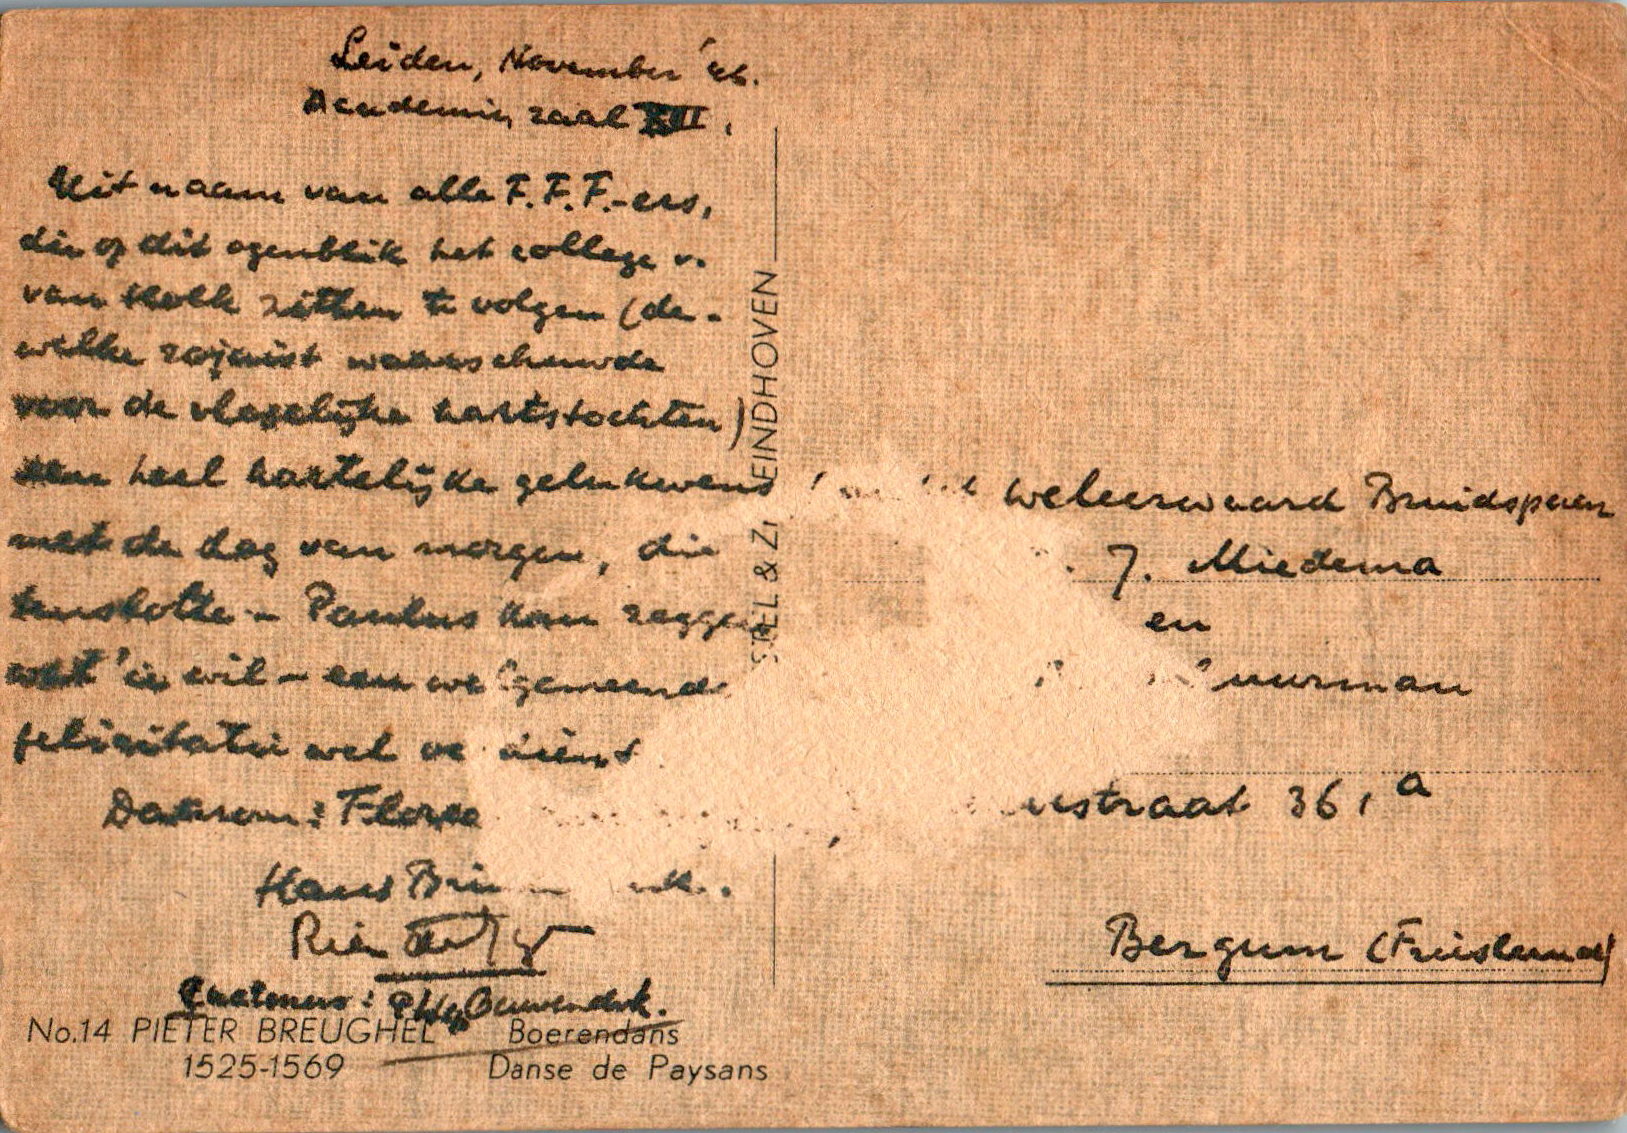 Leiden, November '46.
Academie, zaal III.
Uit naam van alle F.F.F.-ers,
die op dit ogenblik het college v.
van Holk zitten te volgen (de-
welke zojuist waarschuwde
voor de vleselijke hartstochten)
een heel hartelijke gelukwens
met de dag van morgen, die
tenslotte - Paulus kan zeggen
wat ie wil - een welgemeende
felicitatie wel verdient
Daarom:
Hans
Rien
No.14 PIETER BREUGHEL Boerendans
1525-1569 Danse de Paysans
STEL & ZN EINDHOVEN
weleerwaard Bruidspaar
J. Miedema
en
uurman
straat 36, a
Bergum (Friesland)